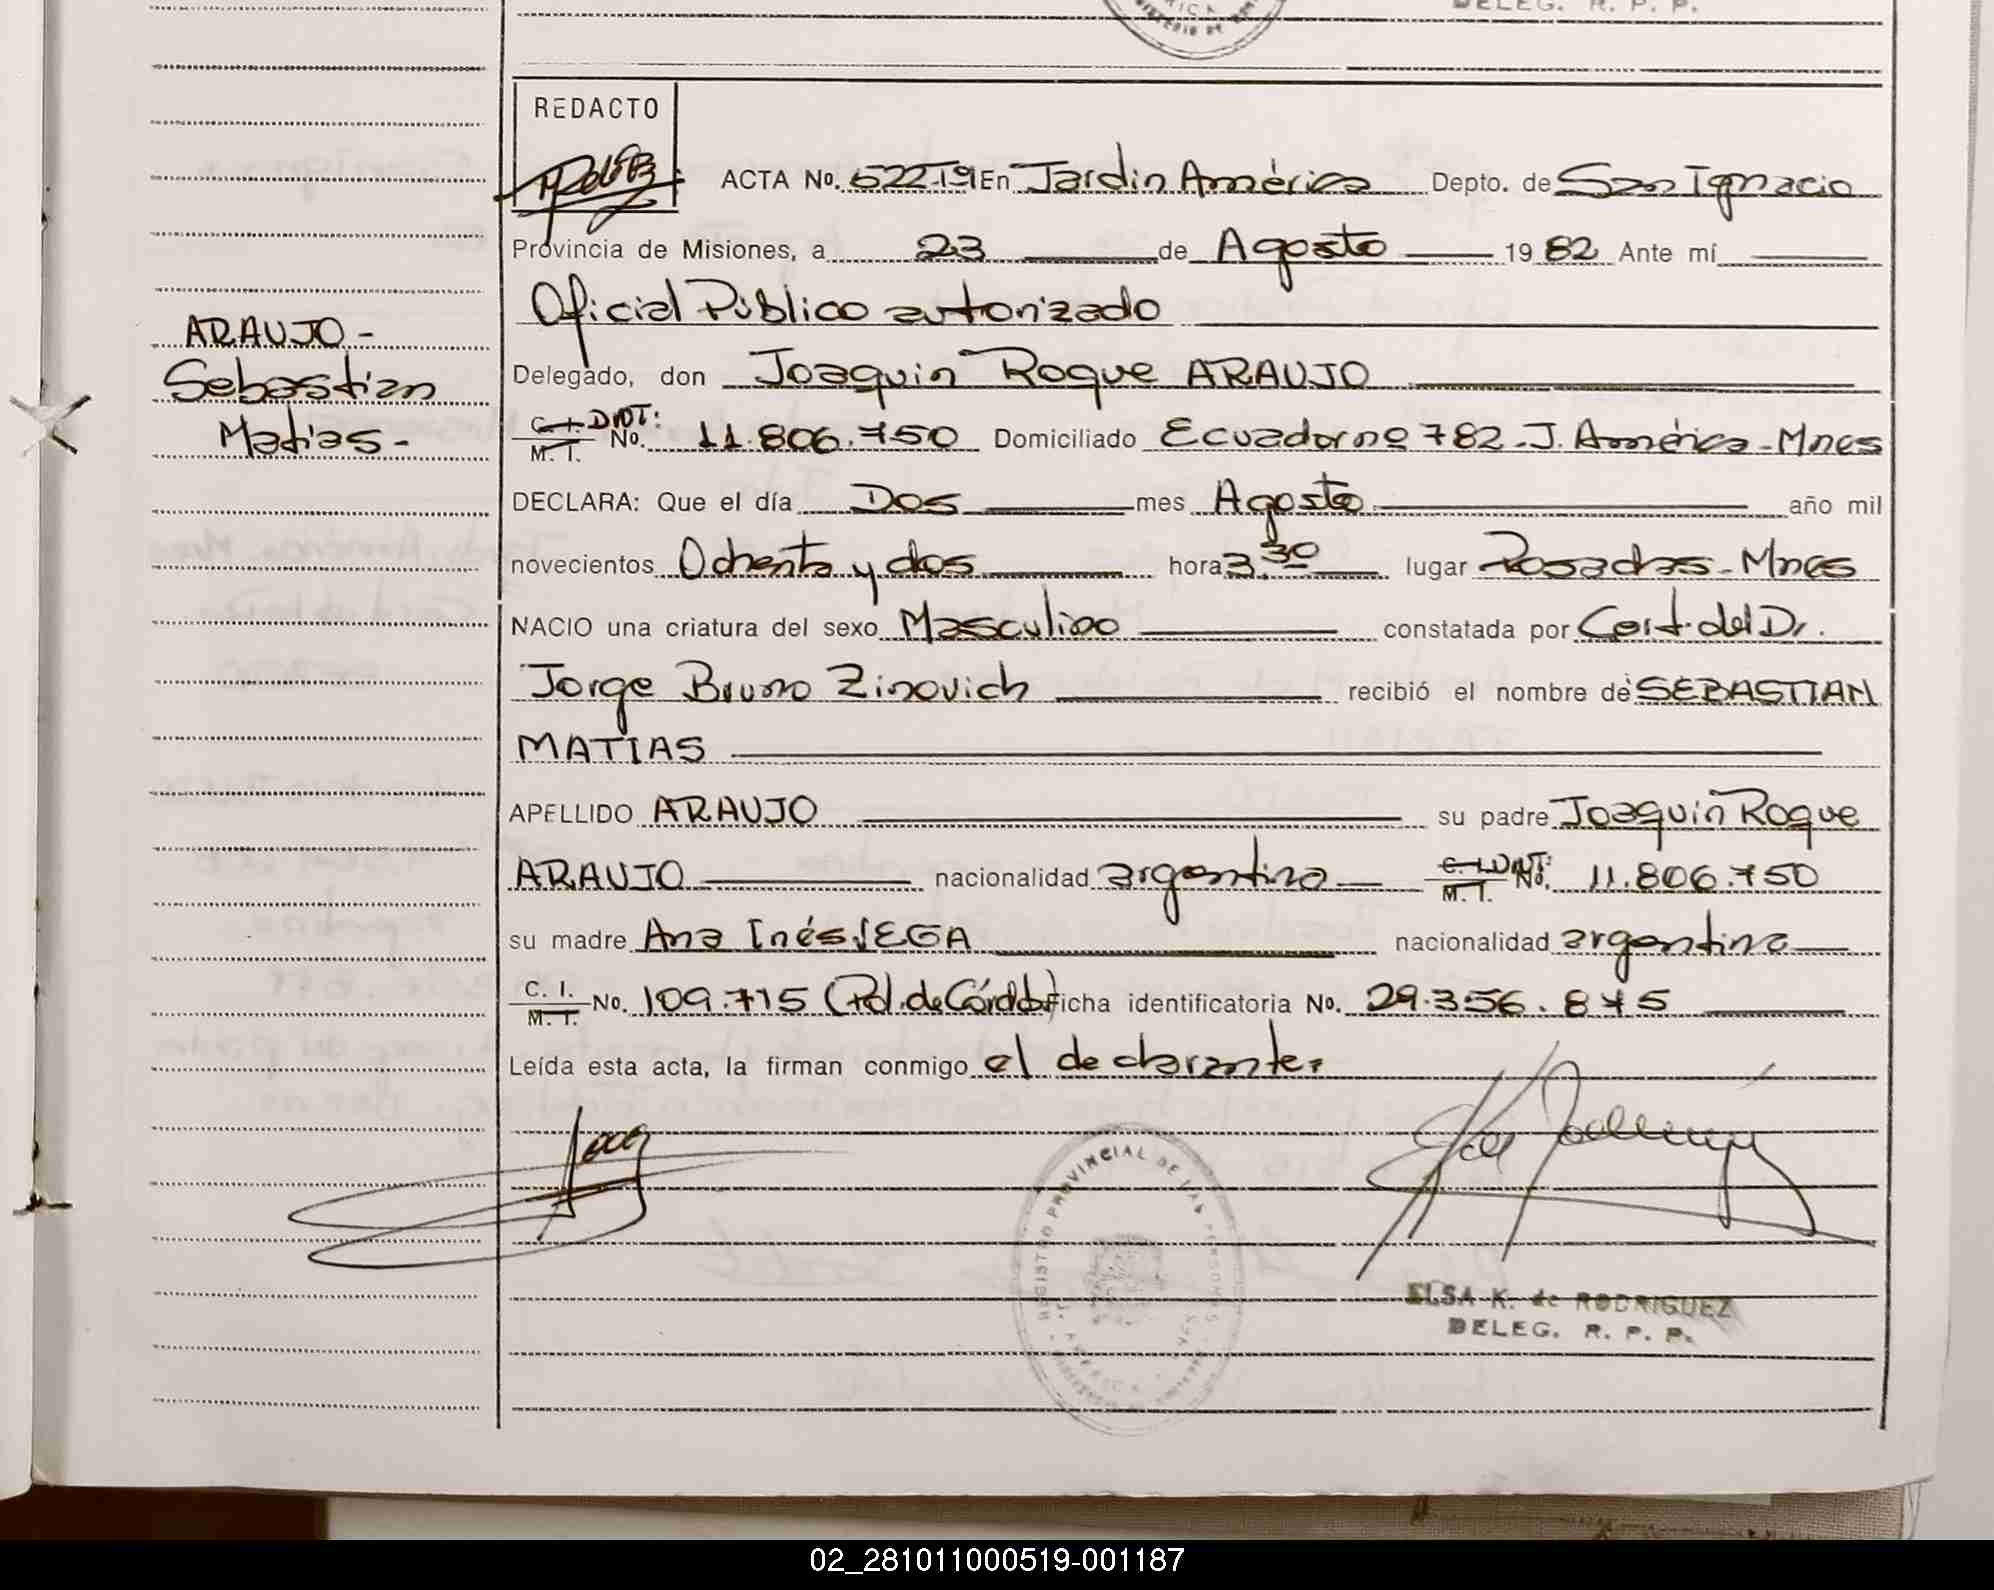 DELEG. R. P. P.
REDACTO
ACTA No. 522 T9I En Jardín América Depto. de San Ignacio
Provincia de Misiones, a 23 de Agosto 1982 Ante mí
Oficial Público autorizado
ARAUJO-
Sebastian
Matias-
Delegado, don Joaquin Roque ARAUJO
C. I. DNT:
M. I. No. 11.806.750 Domiciliado Ecuador nº 782-J. América-Mnes
DECLARA: Que el día Dos mes Agosto año mil
novecientos Ochenta y dos hora 3.30 lugar Posadas-Mnes
NACIO una criatura del sexo Masculino constatada por Cert. del Dr.
Jorge Bruno Zinovich recibió el nombre de SEBASTIAN
MATIAS
APELLIDO ARAUJO su padre Joaquín Roque
ARAUJO nacionalidad argentina C. I. DNT: M. I. No. 11.806.750
su madre Ana Inés VEGA nacionalidad argentina
C. I. M. I. No. 109.715 (Pol. de Córdob) Ficha identificatoria No. 29.356.875
Leída esta acta, la firman conmigo el declarante.
REGISTRO PROVINCIAL DE LAS PERSONAS
ELSA K. de RODRIGUEZ
DELEG. R. P. P.
02_281011000519-001187